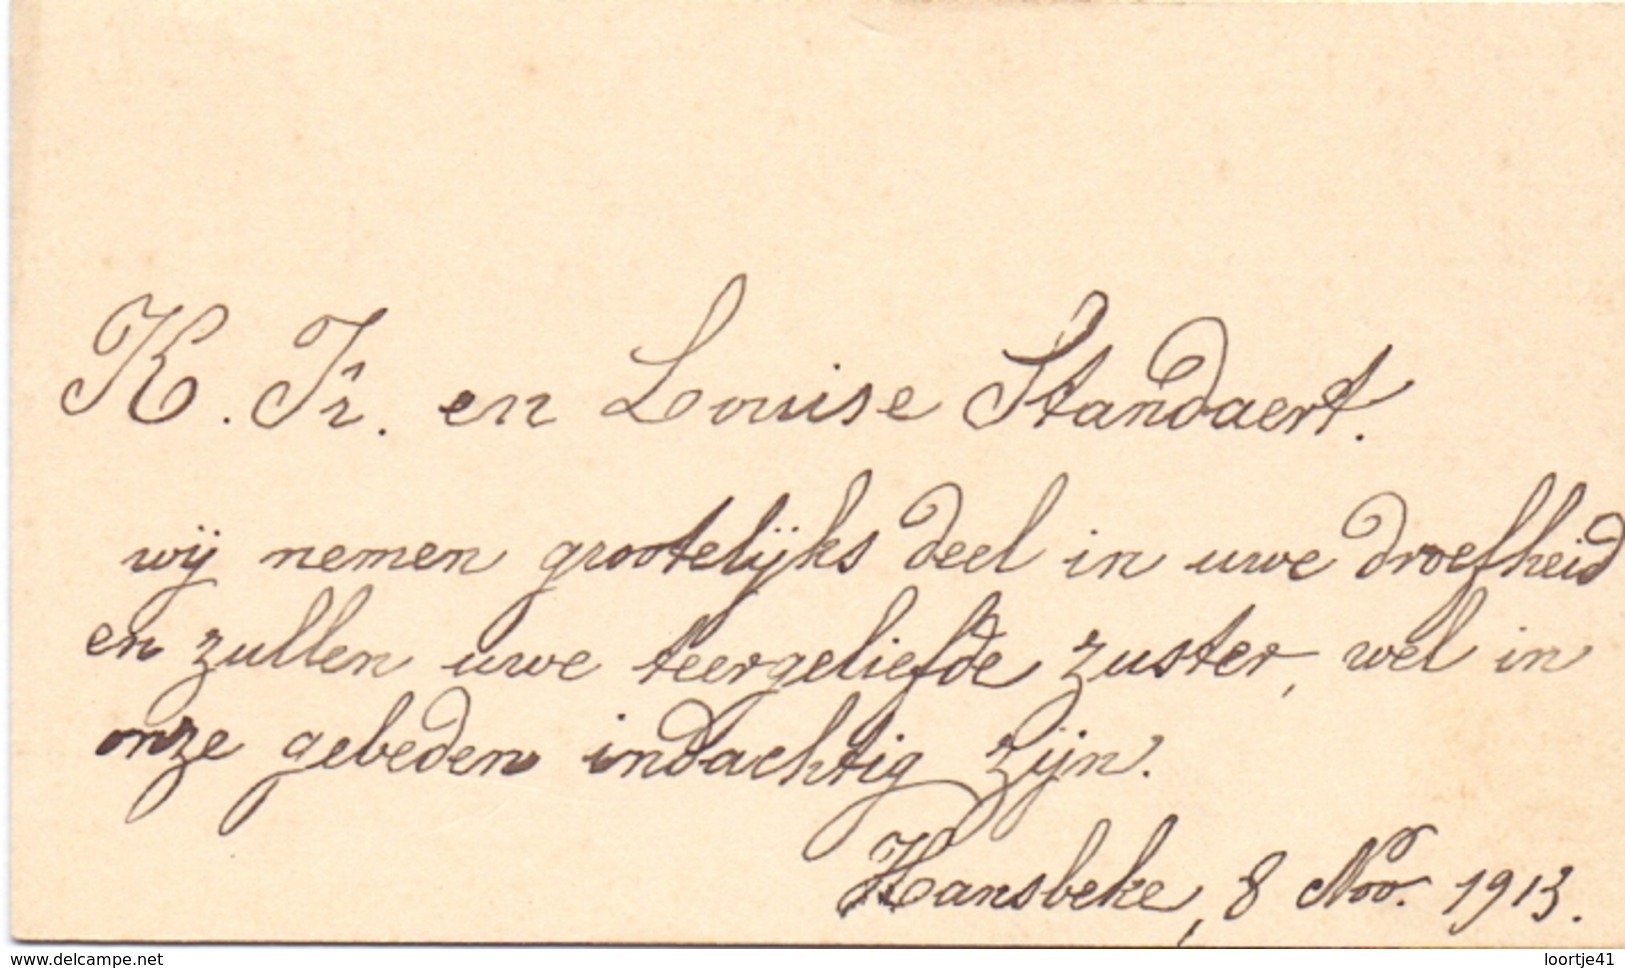 K. Fr. en Louise Standaert.
wij nemen grootelijks deel in uwe droefheid
en zullen uwe teergeliefde zuster, wel in
onze gebeden indachtig zijn.
Hansbeke, 8 Nov. 1913.
www.delcampe.net
loortje41